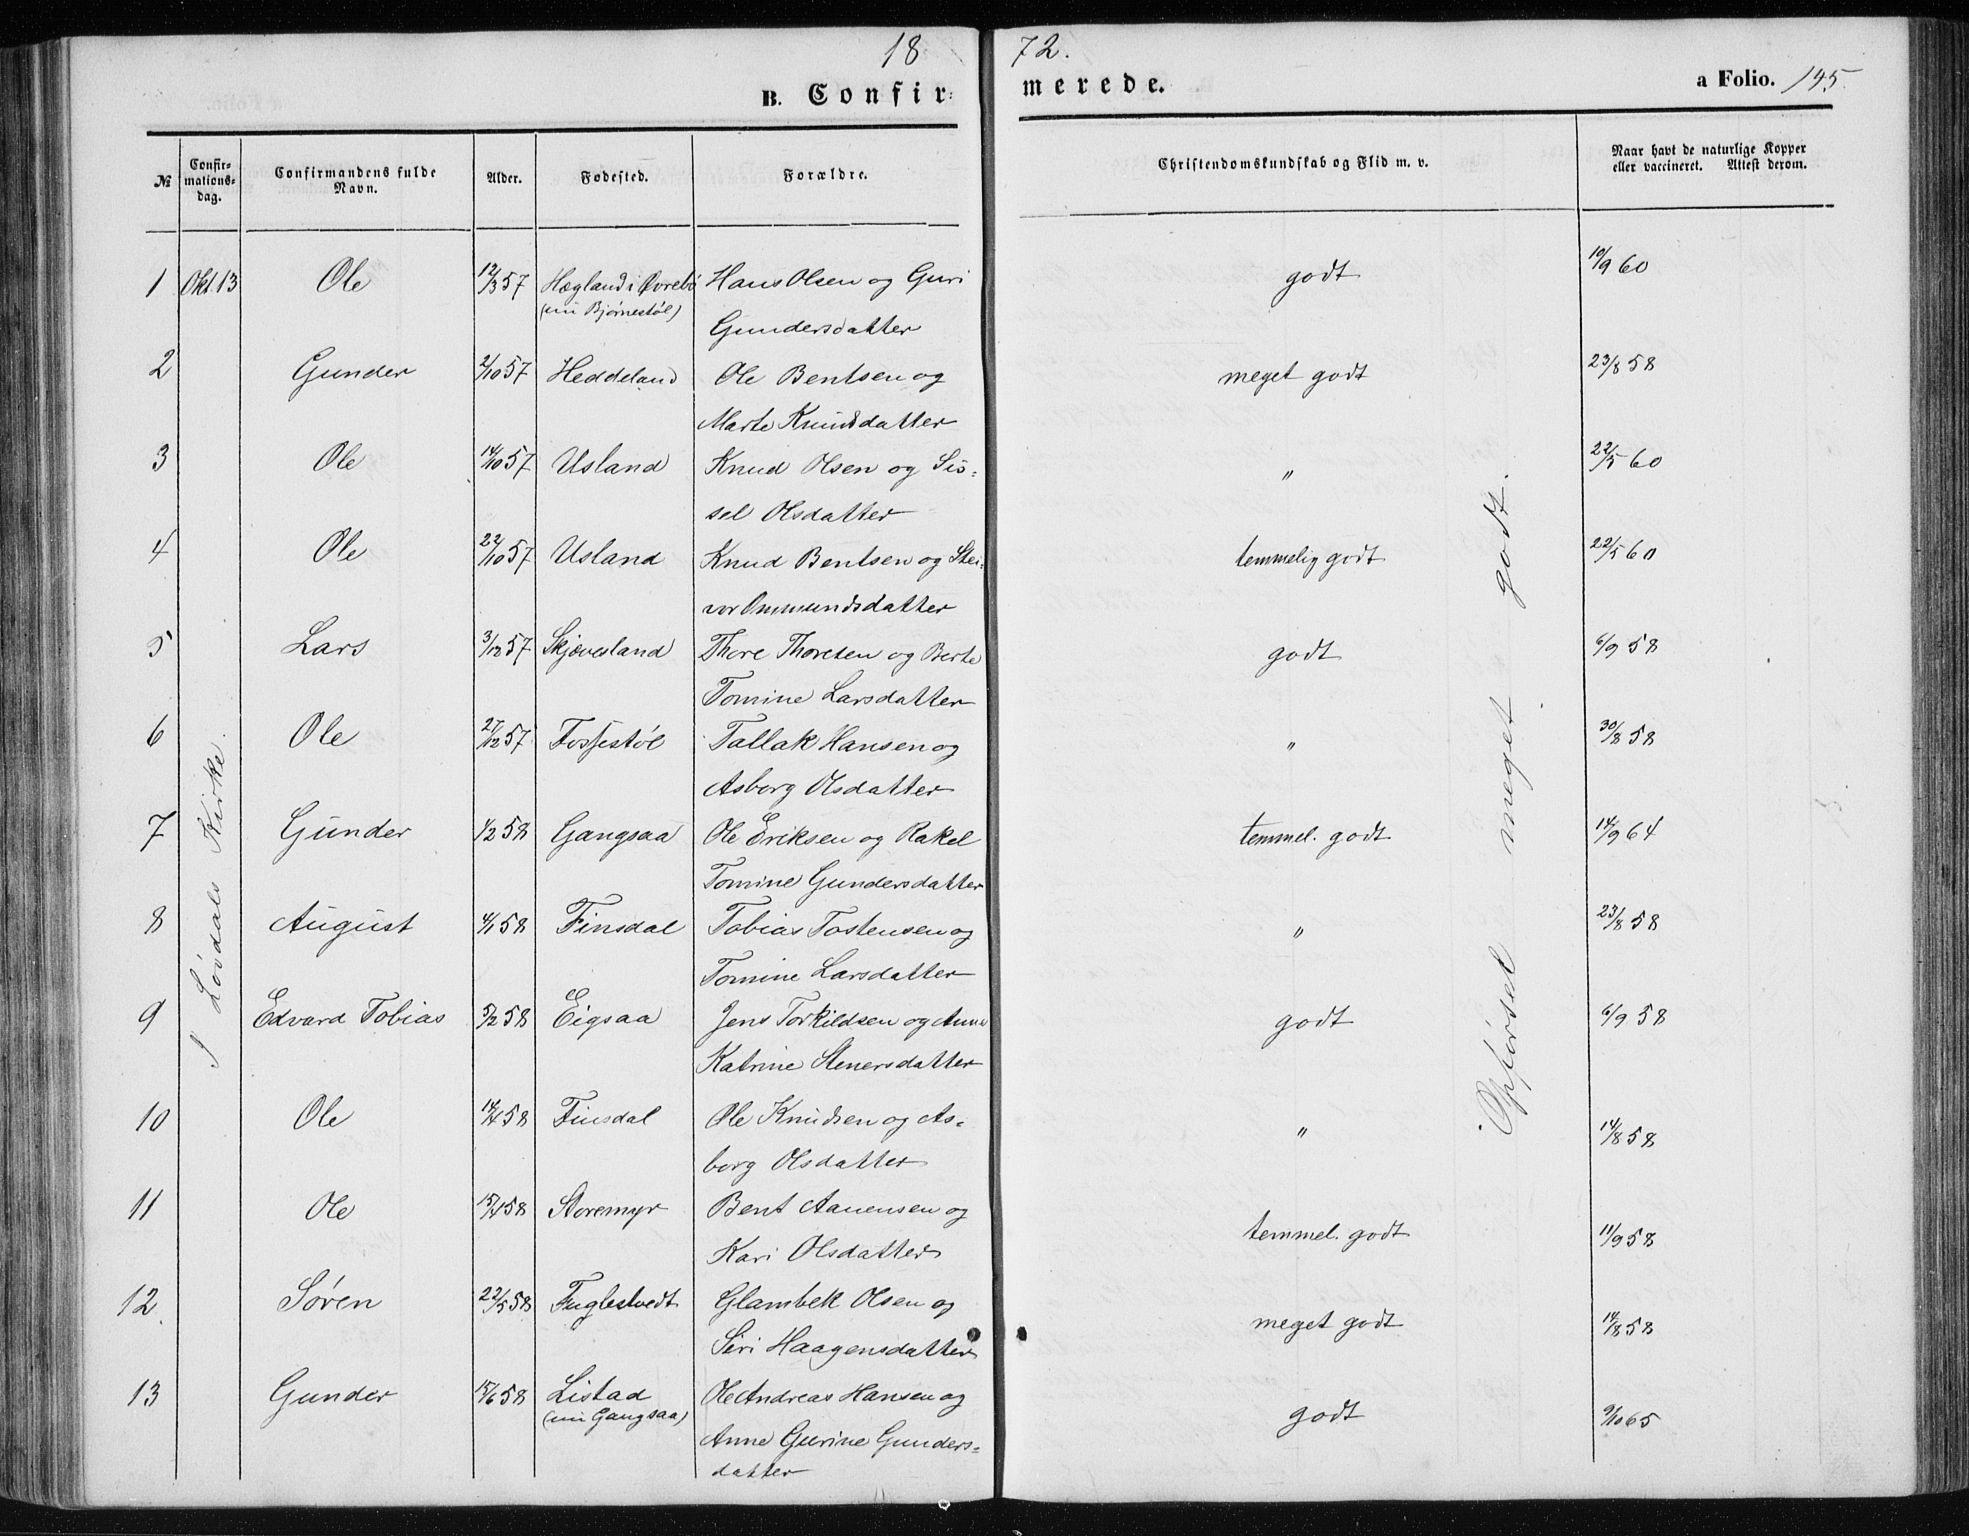 1872.
B. Confirmerede. a Folio. 145.
№ Confirmations-dag. Confirmandens fulde Navn. Alder. Fødested. Forældre. Christendomskundskab og Flid m. v. Naar havt de naturlige Kopper eller vaccineret. Attest derom.
I Løvdals Kirke.
Opførsel meget godt.
1 Okt. 13 Ole 12/3 57 Hægland i Øvrebø Hans Olsen og Guri godt 10/9 60
(nu Bjørnestøl) Gundersdatter
2 Gunder 2/10 57 Heddeland Ole Bentsen og meget godt 23/8 58
Marte Knudsdatter
3 Ole 14/10 57 Usland Knud Olsen og Sis- " 22/5 60
sel Olsdatter
4 Ole 22/10 57 Usland Knud Bentsen og Stei- temmelig godt 22/5 60
vor Ommundsdatter
5 Lars 3/12 57 Skjævesland Thore Thoresen og Berte godt 6/9 58
Tomine Larsdatter
6 Ole 27/12 57 Fossestøl Tallak Hansen og " 30/8 58
Asborg Olsdatter
7 Gunder 1/2 58 Gangsaa Ole Eriksen og Rakel temmel. godt 14/9 64
Tomine Gundersdatter
8 August 4/1 58 Finsdal Tobias Tostensen og " 23/8 58
Tomine Larsdatter
9 Edvard Tobias 5/2 58 Eigsaa Jens Torkildsen og Anne godt 6/9 58
Katrine Stenersdatter
10 Ole 14/4 58 Finsdal Ole Knudsen og As- " 14/8 58
borg Olsdatter
11 Ole 15/4 58 Storemyr Bent Aanensen og temmel. godt 11/9 58
Kari Olsdatter
12. Søren 22/5 58 Fuglestvedt Glambek Olsen og meget godt 14/8 58
Siri Haagensdatter
13 Gunder 15/6 58 Listad Ole Andreas Hansen og godt 9/10 65
(nu Gangsaa) Anne Gurine Gunders-
datter